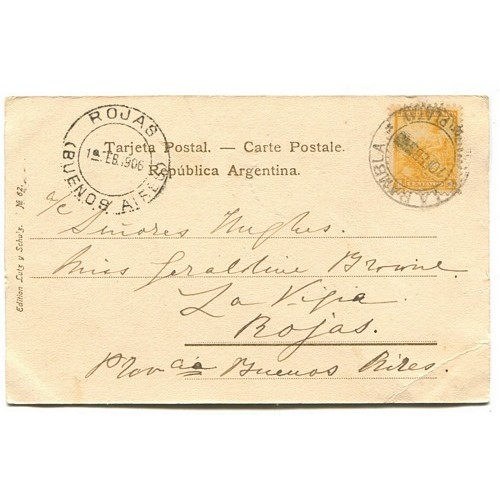 ROJAS
(BUENOS AIRES)
1º FEB. 1906
Tarjeta Postal. — Carte Postale.
República Argentina.
RAMBLA
a/c Señores Hughes.
Miss Geraldine Browne.
La Vigia
Rojas.
Prov cia Buenos Aires.
Edition Lutz y Schulz. № 67.